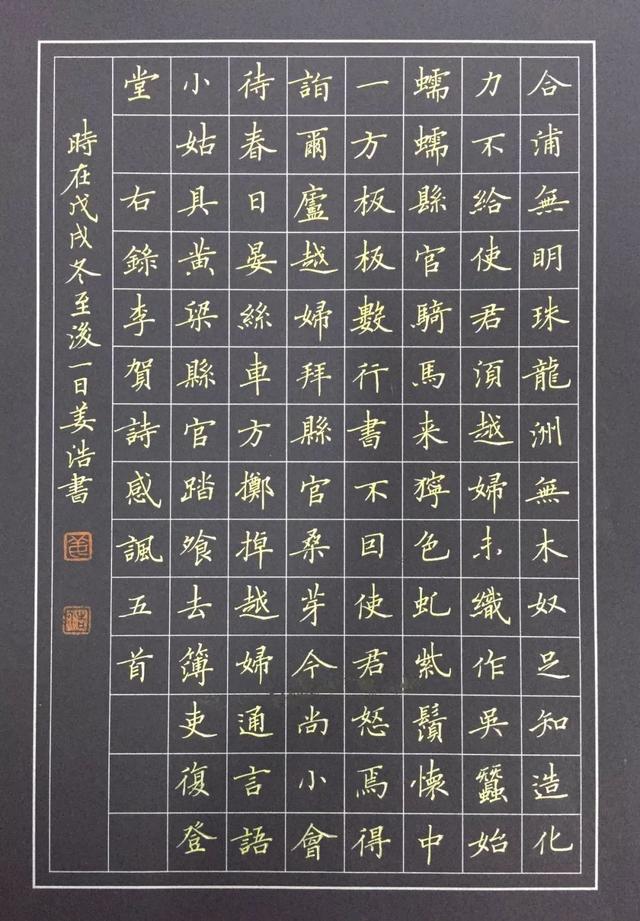 合浦無明珠龍洲無木奴足知造化
力不給使君須越婦未織作吳蠶始
蠕蠕縣官騎馬来獰色虬紫鬚懷中
一方板板數行書不囙使君怒焉得
詣爾廬越婦拜縣官桑芽今尚小會
待春日晏絲車方擲掉越婦通言語
小姑具黄粱縣官踏飱去簿吏復登
堂 右錄李賀詩感諷五首
時在戊戌冬至後一日姜浩書
姜
浩